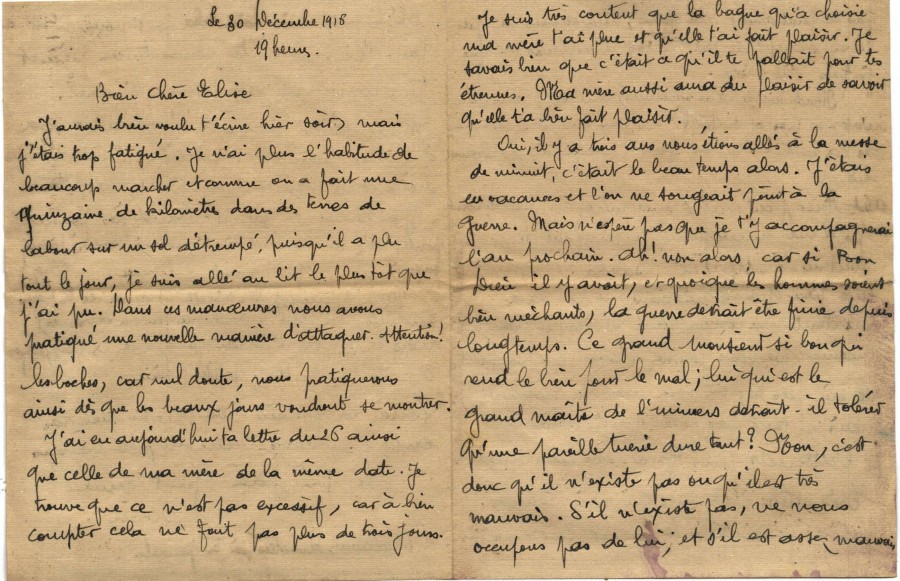 Le 30 Décembre 1916
19 heures.
Bien chère Elise
J'aurais bien voulu t'écrire hier soir, mais
j'étais trop fatigué. Je n'ai plus l'habitude de
beaucoup marcher et comme on a fait une
quinzaine de kilomètres dans des terres de
labour sur un sol détrempé, puisqu'il a plu
tout le jour, je suis allé au lit le plus tôt que
j'ai pu. Dans ces manœuvres nous avons
pratiqué une nouvelle manière d'attaquer. Attention!
les boches, car nul doute, nous pratiquerons
ainsi dès que les beaux jours voudront se montrer.
J'ai eu aujourd'hui ta lettre du 26 ainsi
que celle de ma mère de la même date. Je
trouve que ce n'est pas excessif, car à bien
compter cela ne fait pas plus de trois jours.
Je suis très content que la bague qu'a choisie
ma mère t'ai plue et qu'elle t'ai fait plaisir. Je
savais bien que c'était ce qu'il te fallait pour tes
étrennes. Ma mère aussi aura du plaisir de savoir
qu'elle t'a bien fait plaisir.
Oui, il y a trois ans nous étions allés à la messe
de minuit, c'était le beau temps alors. J'étais
en vacances et l'on ne songeait point à la
guerre. Mais n'espère pas que je t'y accompagnerai
l'an prochain. Ah! non alors, car si Bon
Dieu il y avait, et quoique les hommes soient
bien méchants, la guerre devrait être finie depuis
longtemps. Ce grand monsieur si bon qui
rend le bien pour le mal; lui qui est le
grand maître de l'univers devrait-il tolérer
qu'une pareille tuerie dure tant? Non, c'est
donc qu'il n'existe pas ou qu'il est très
mauvais. S'il n'existe pas, ne nous
occupons pas de lui; et s'il est assez mauvais